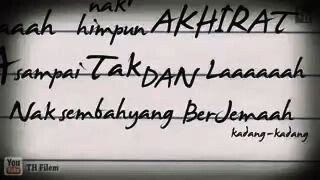 nak
aaaah himpun AKHIRAT
sampai Tak DAN Laaaaaah
Nak sembahyang BerJemaah
kadang-kadang
You Tube TH Filem